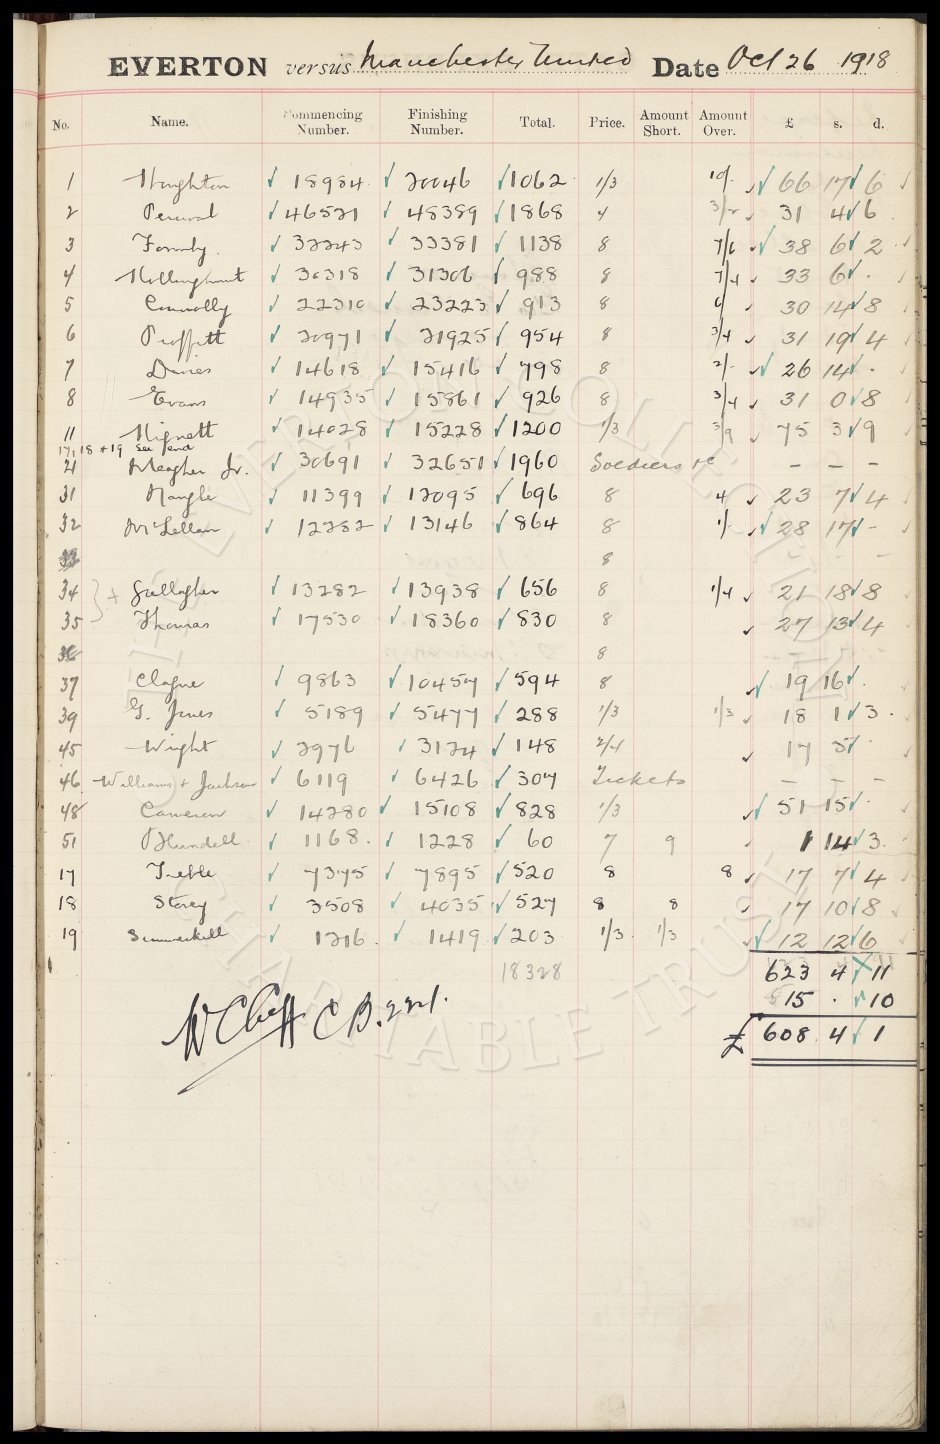 EVERTON versus Manchester United Date Oct 26 1918
No. Name. Commencing Number. Finishing Number. Total. Price. Amount Short. Amount Over. £ s. d.
1 Houghton 18984 20046 1062 1/3 10/- 66 17 6
2 Percival 46521 48389 1868 4 3/2 31 4 6
3 Formby 32243 33381 1138 8 7/6 38 6 2
4 Hollinghurst 30318 31306 988 8 7/4 33 6 -
5 Connolly 22310 23223 913 8 6 30 14 8
6 Proffitt 20971 21925 954 8 3/4 31 19 4
7 Davies 14618 15416 798 8 2/- 26 14 -
8 Evans 14935 15861 926 8 3/4 31 0 8
11 Hignett 14028 15228 1200 1/3 3/9 75 3 9
17, 18 + 19 see end
21 Meagher Jr. 30691 32651 1960 Soldiers &c - - -
31 Nangle 11399 12095 696 8 4 23 7 4
32 McLellan 12282 13146 864 8 1/- 28 17 -
33 8 -
34 Gallagher 13282 13938 656 8 1/4 21 18 8
35 Thomas 17530 18360 830 8 27 13 4
36 8
37 Clague 9863 10457 594 8 19 16 -
39 G. Jones 5189 5477 288 1/3 1/3 18 1 3
45 Wright 2976 3124 148 2/4 17 5 -
46 Williams + Jackson 6119 6426 307 Tickets - - -
48 Cameron 14280 15108 828 1/3 51 15 -
51 Blundell 1168 1228 60 7 9 1 14 3
17 Treble 7375 7895 520 8 8 17 7 4
18 Storey 3508 4035 527 8 8 17 10 8
19 Summerskill 1216 1419 203 1/3 1/3 12 12 6
18328 623 4 11
15 . 10
W C Cuff C.B. 221. £ 608 4 1
THE EVERTON COLLECTION
CHARITABLE TRUST